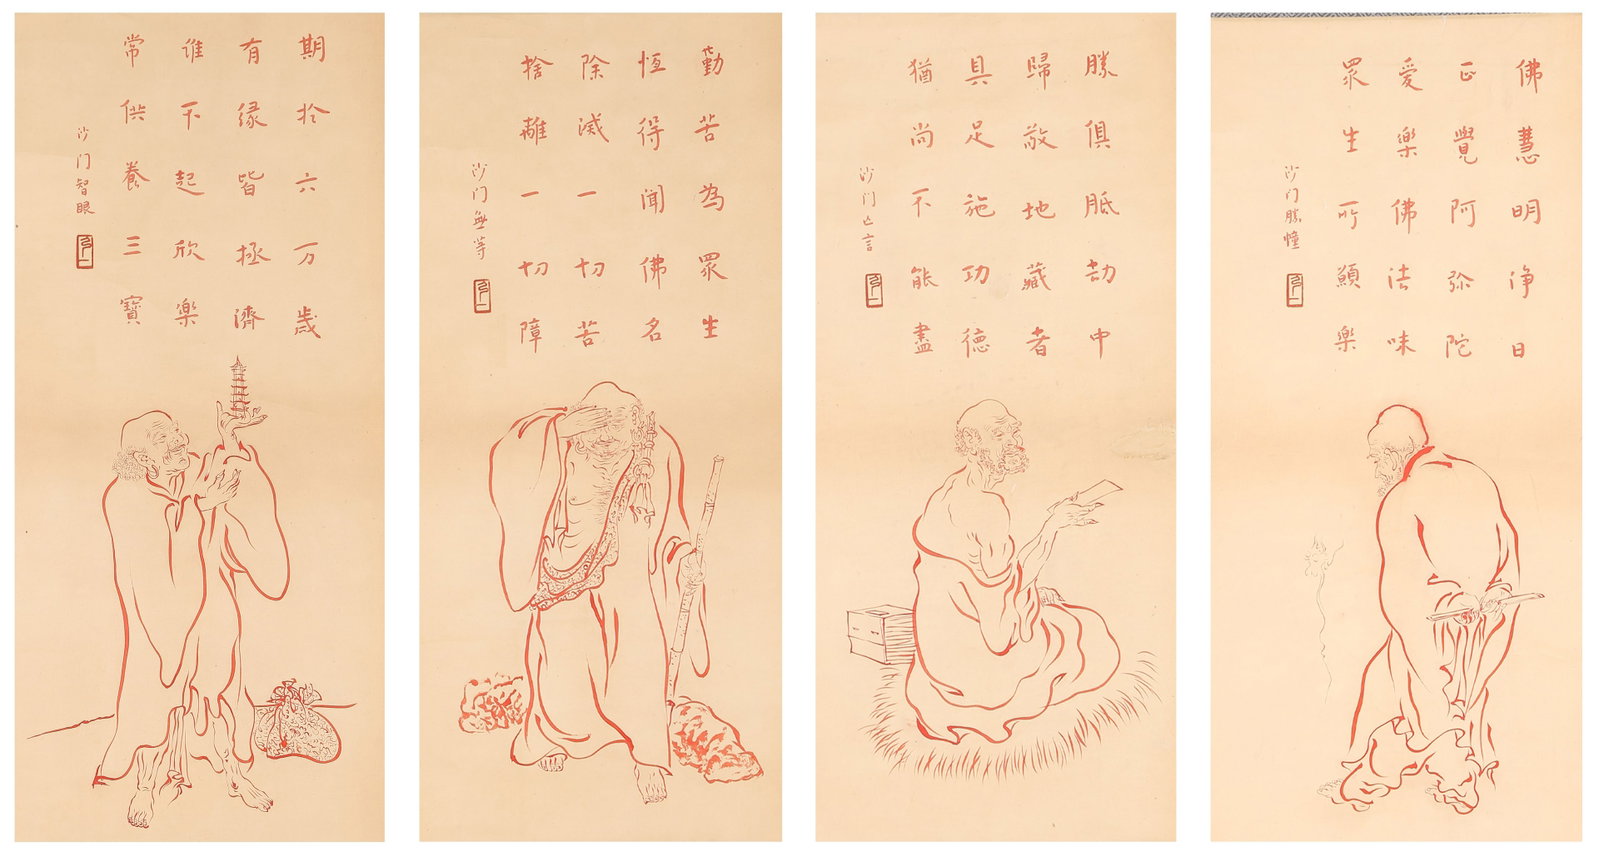 佛慧明净日
正覺阿弥陀
愛樂佛法味
眾生所願樂
沙门勝幢
勝俱胝劫中
歸敬地藏者
具足施功德
猶尚不能盡
沙门亡言
勤苦為眾生
恆得聞佛名
除滅一切苦
捨離一切障
沙门無等
期於六万歲
有缘皆拯濟
谁不起欣樂
常供養三寶
沙门智眼